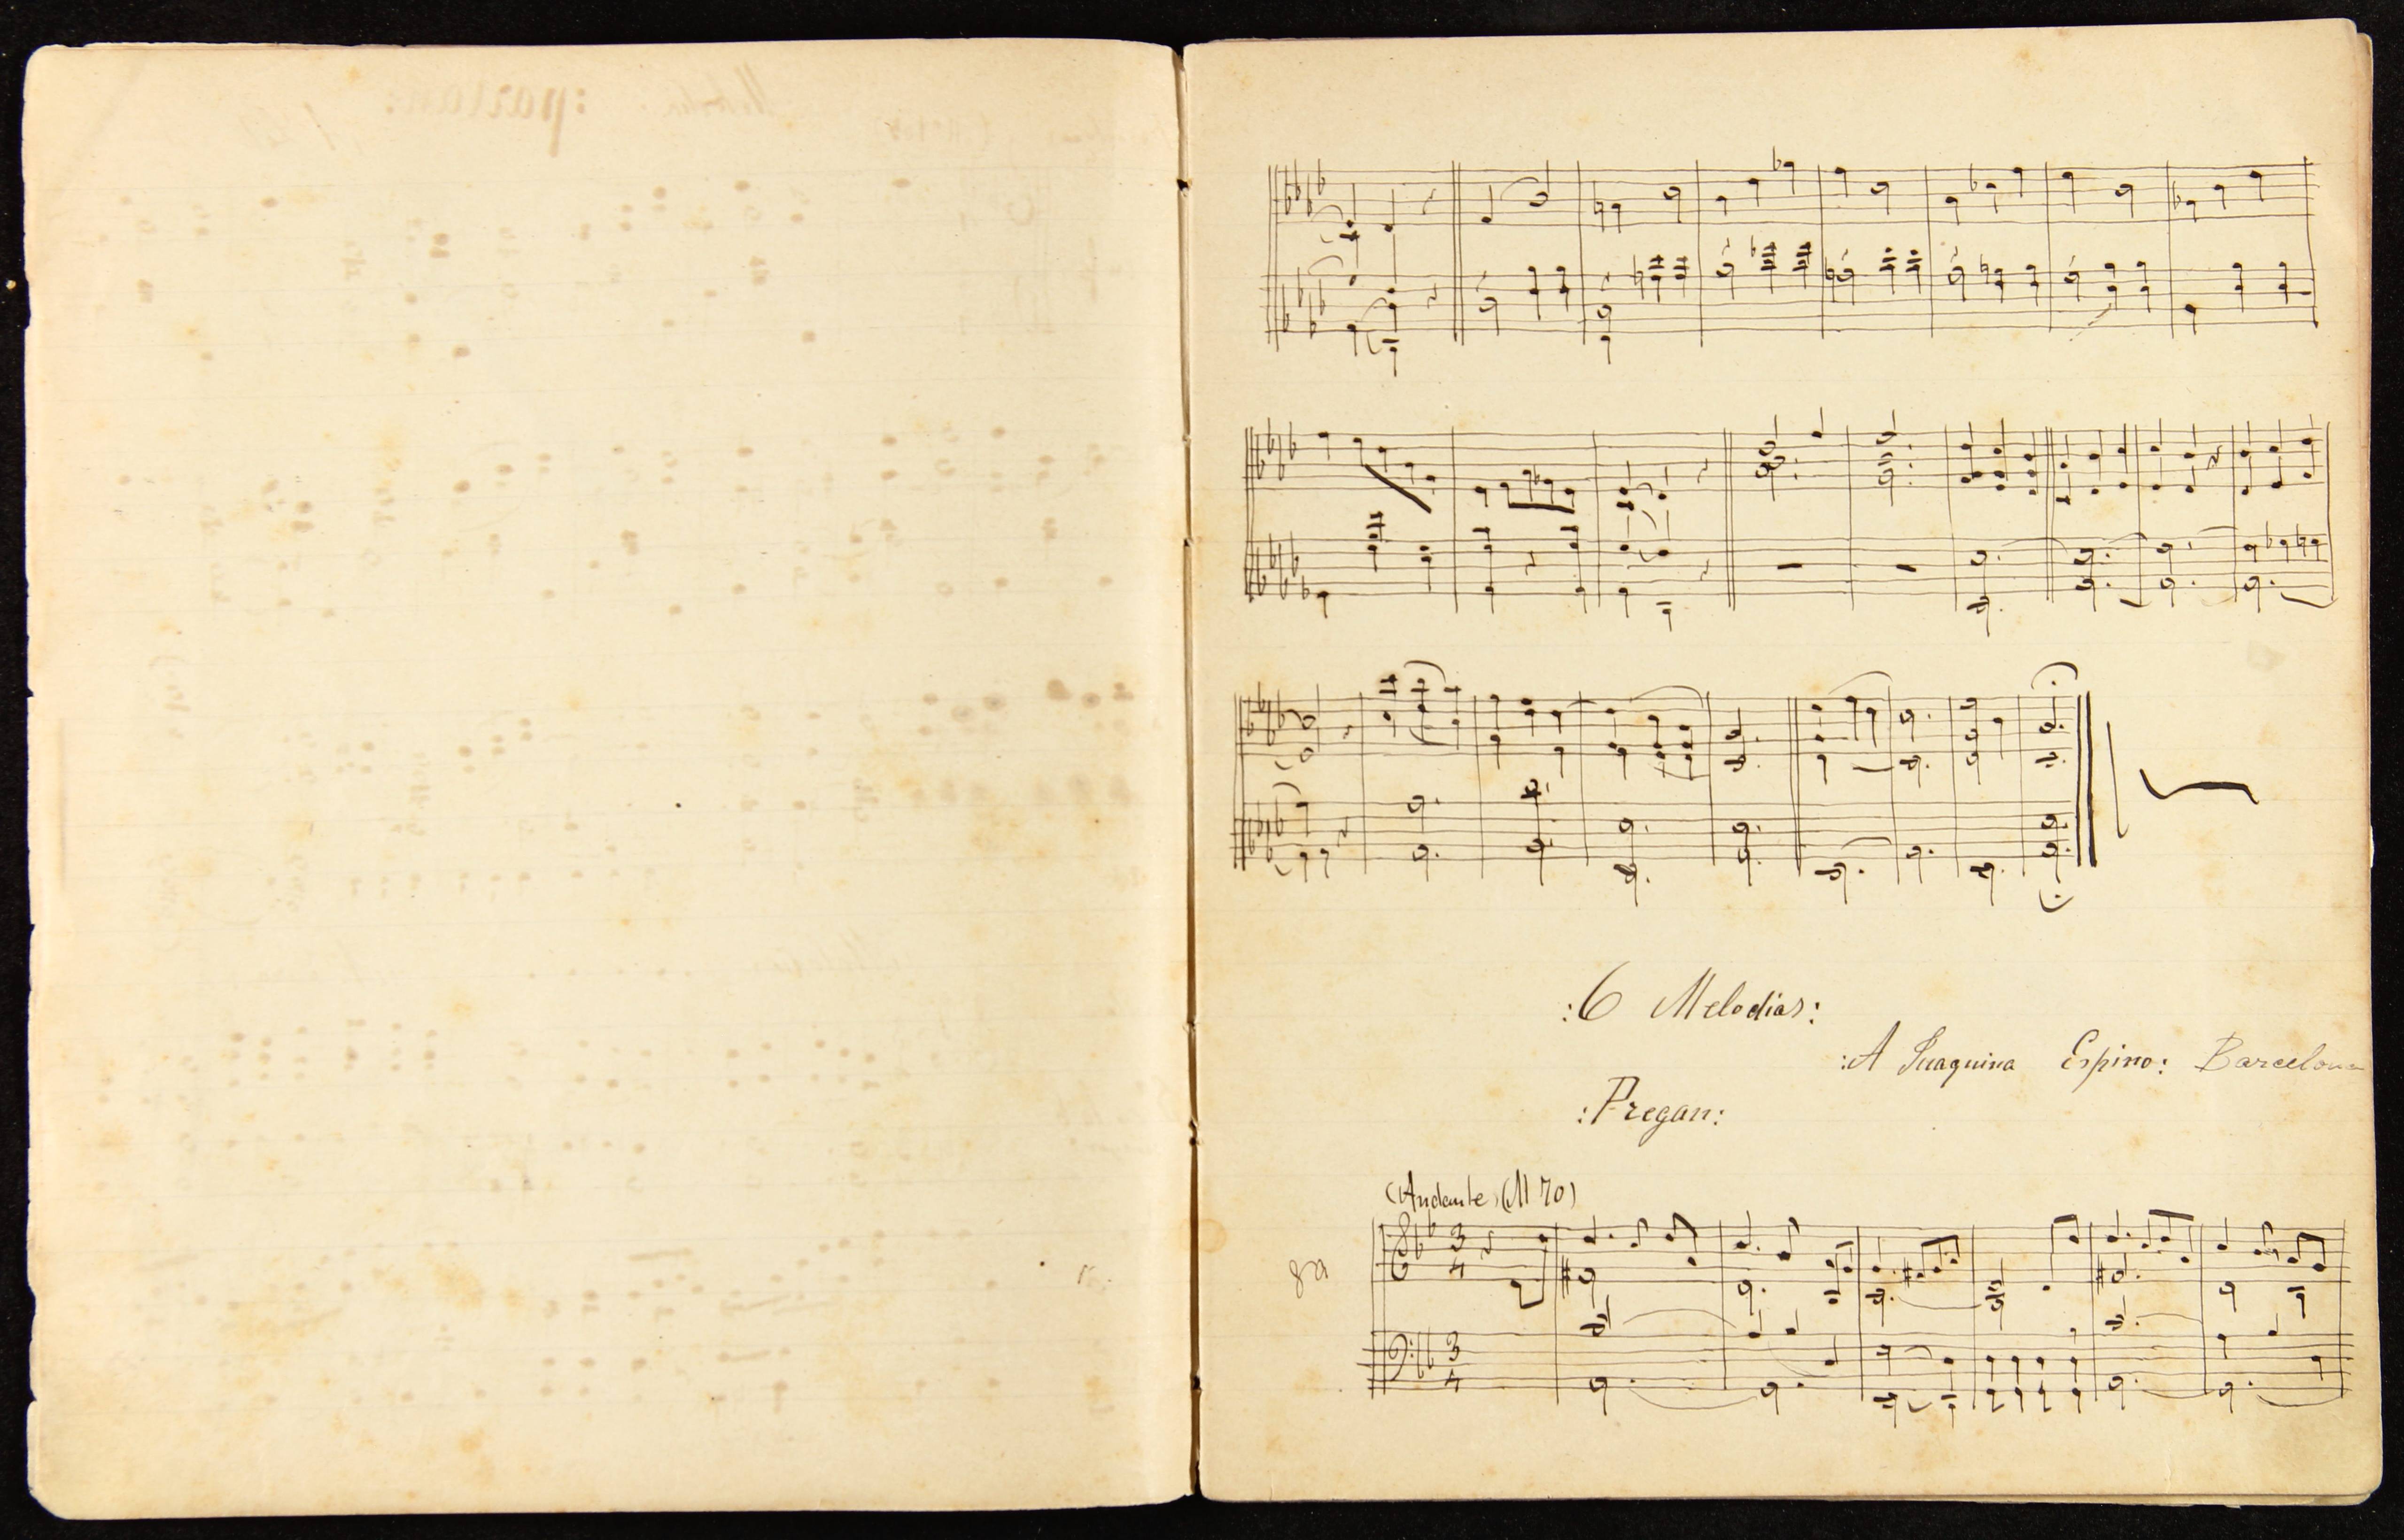 :6 Melodias:
:A Juaquina Espino: Barcelona
:Pregan:
(Andante (M 70)
8a
3
4
3
4